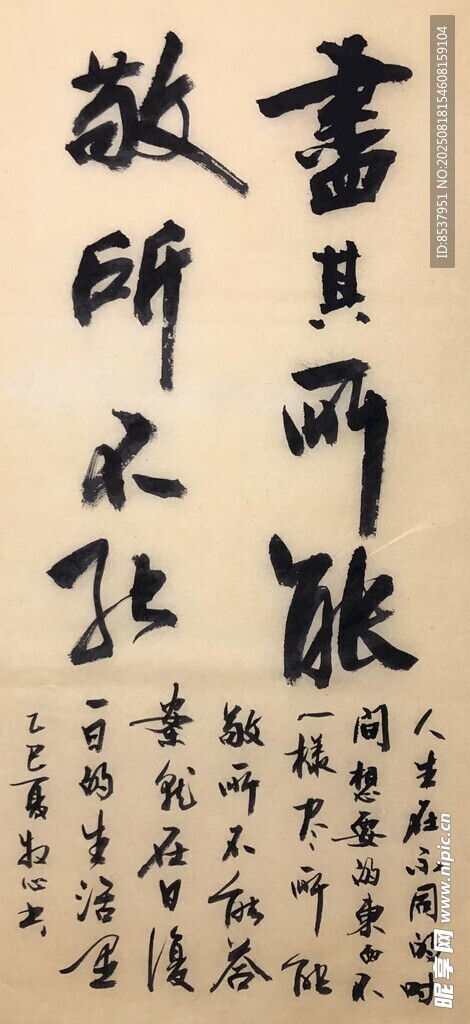 盡其所能
敬所不能
人生在不同的时
间想要的東西不
一樣尽所能
敬所不能答
案就在日復
一日的生活里
乙巳夏牧心书
ID:8537951 NO:20250818154608159104
昵享网 www.nipic.cn